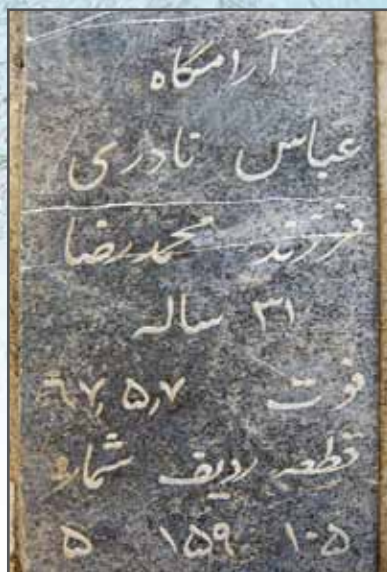 آرامگاه
عباس نادری
فرزند محمدرضا
۳۱ ساله
فوت ۶۷٫۵٫۷
قطعه ردیف شماره
۱۰۵ ۱۵۹ ۵